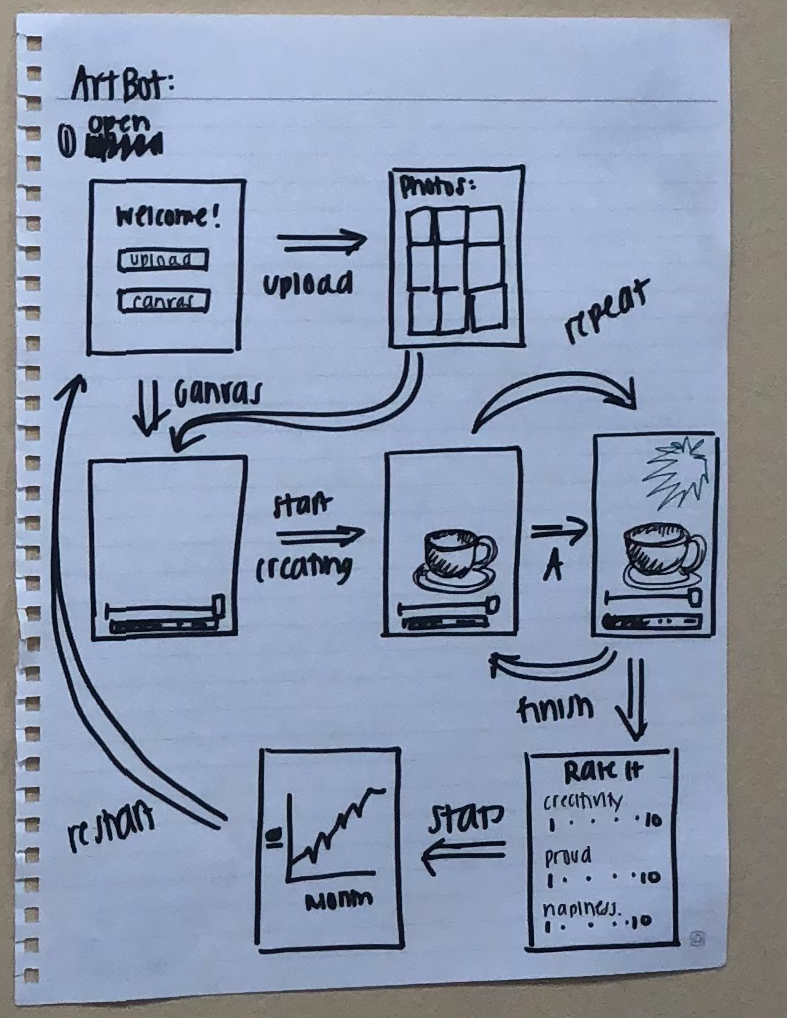 ArtBot:
① open
Welcome!
upload
canvas
upload
Photos:
repeat
canvas
start
creating
A
finish
Rate It
creativity
1 . . . . 10
proud
1 . . . . 10
hapiness.
1 . . . . 10
stats
10
Month
restart